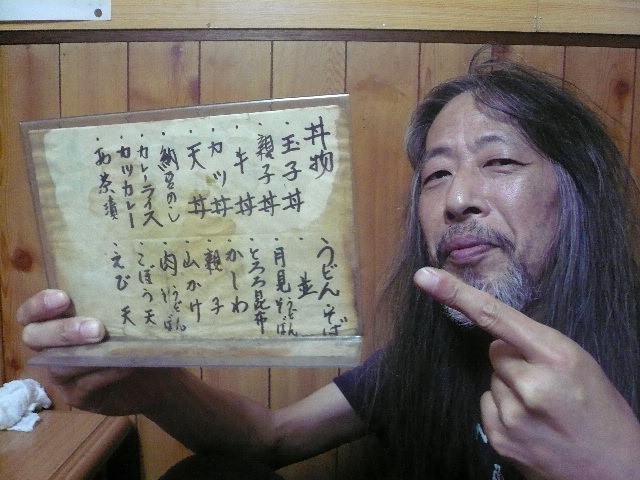 丼物
・玉子丼
・親子丼
・牛丼
・カツ丼
・天丼
・カレーライス
・カツカレー
・お茶漬
うどん そば
・並
・月見うどんそば
・とろろ昆布
・かしわ
・親子
・山かけ
・肉うどんそば
・ごぼう天
・えび天